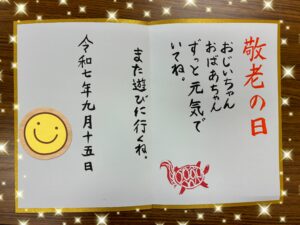 敬老の日
おじいちゃん
おばあちゃん
ずっと元気で
いてね。
また遊びに行くね。
令和七年九月十五日